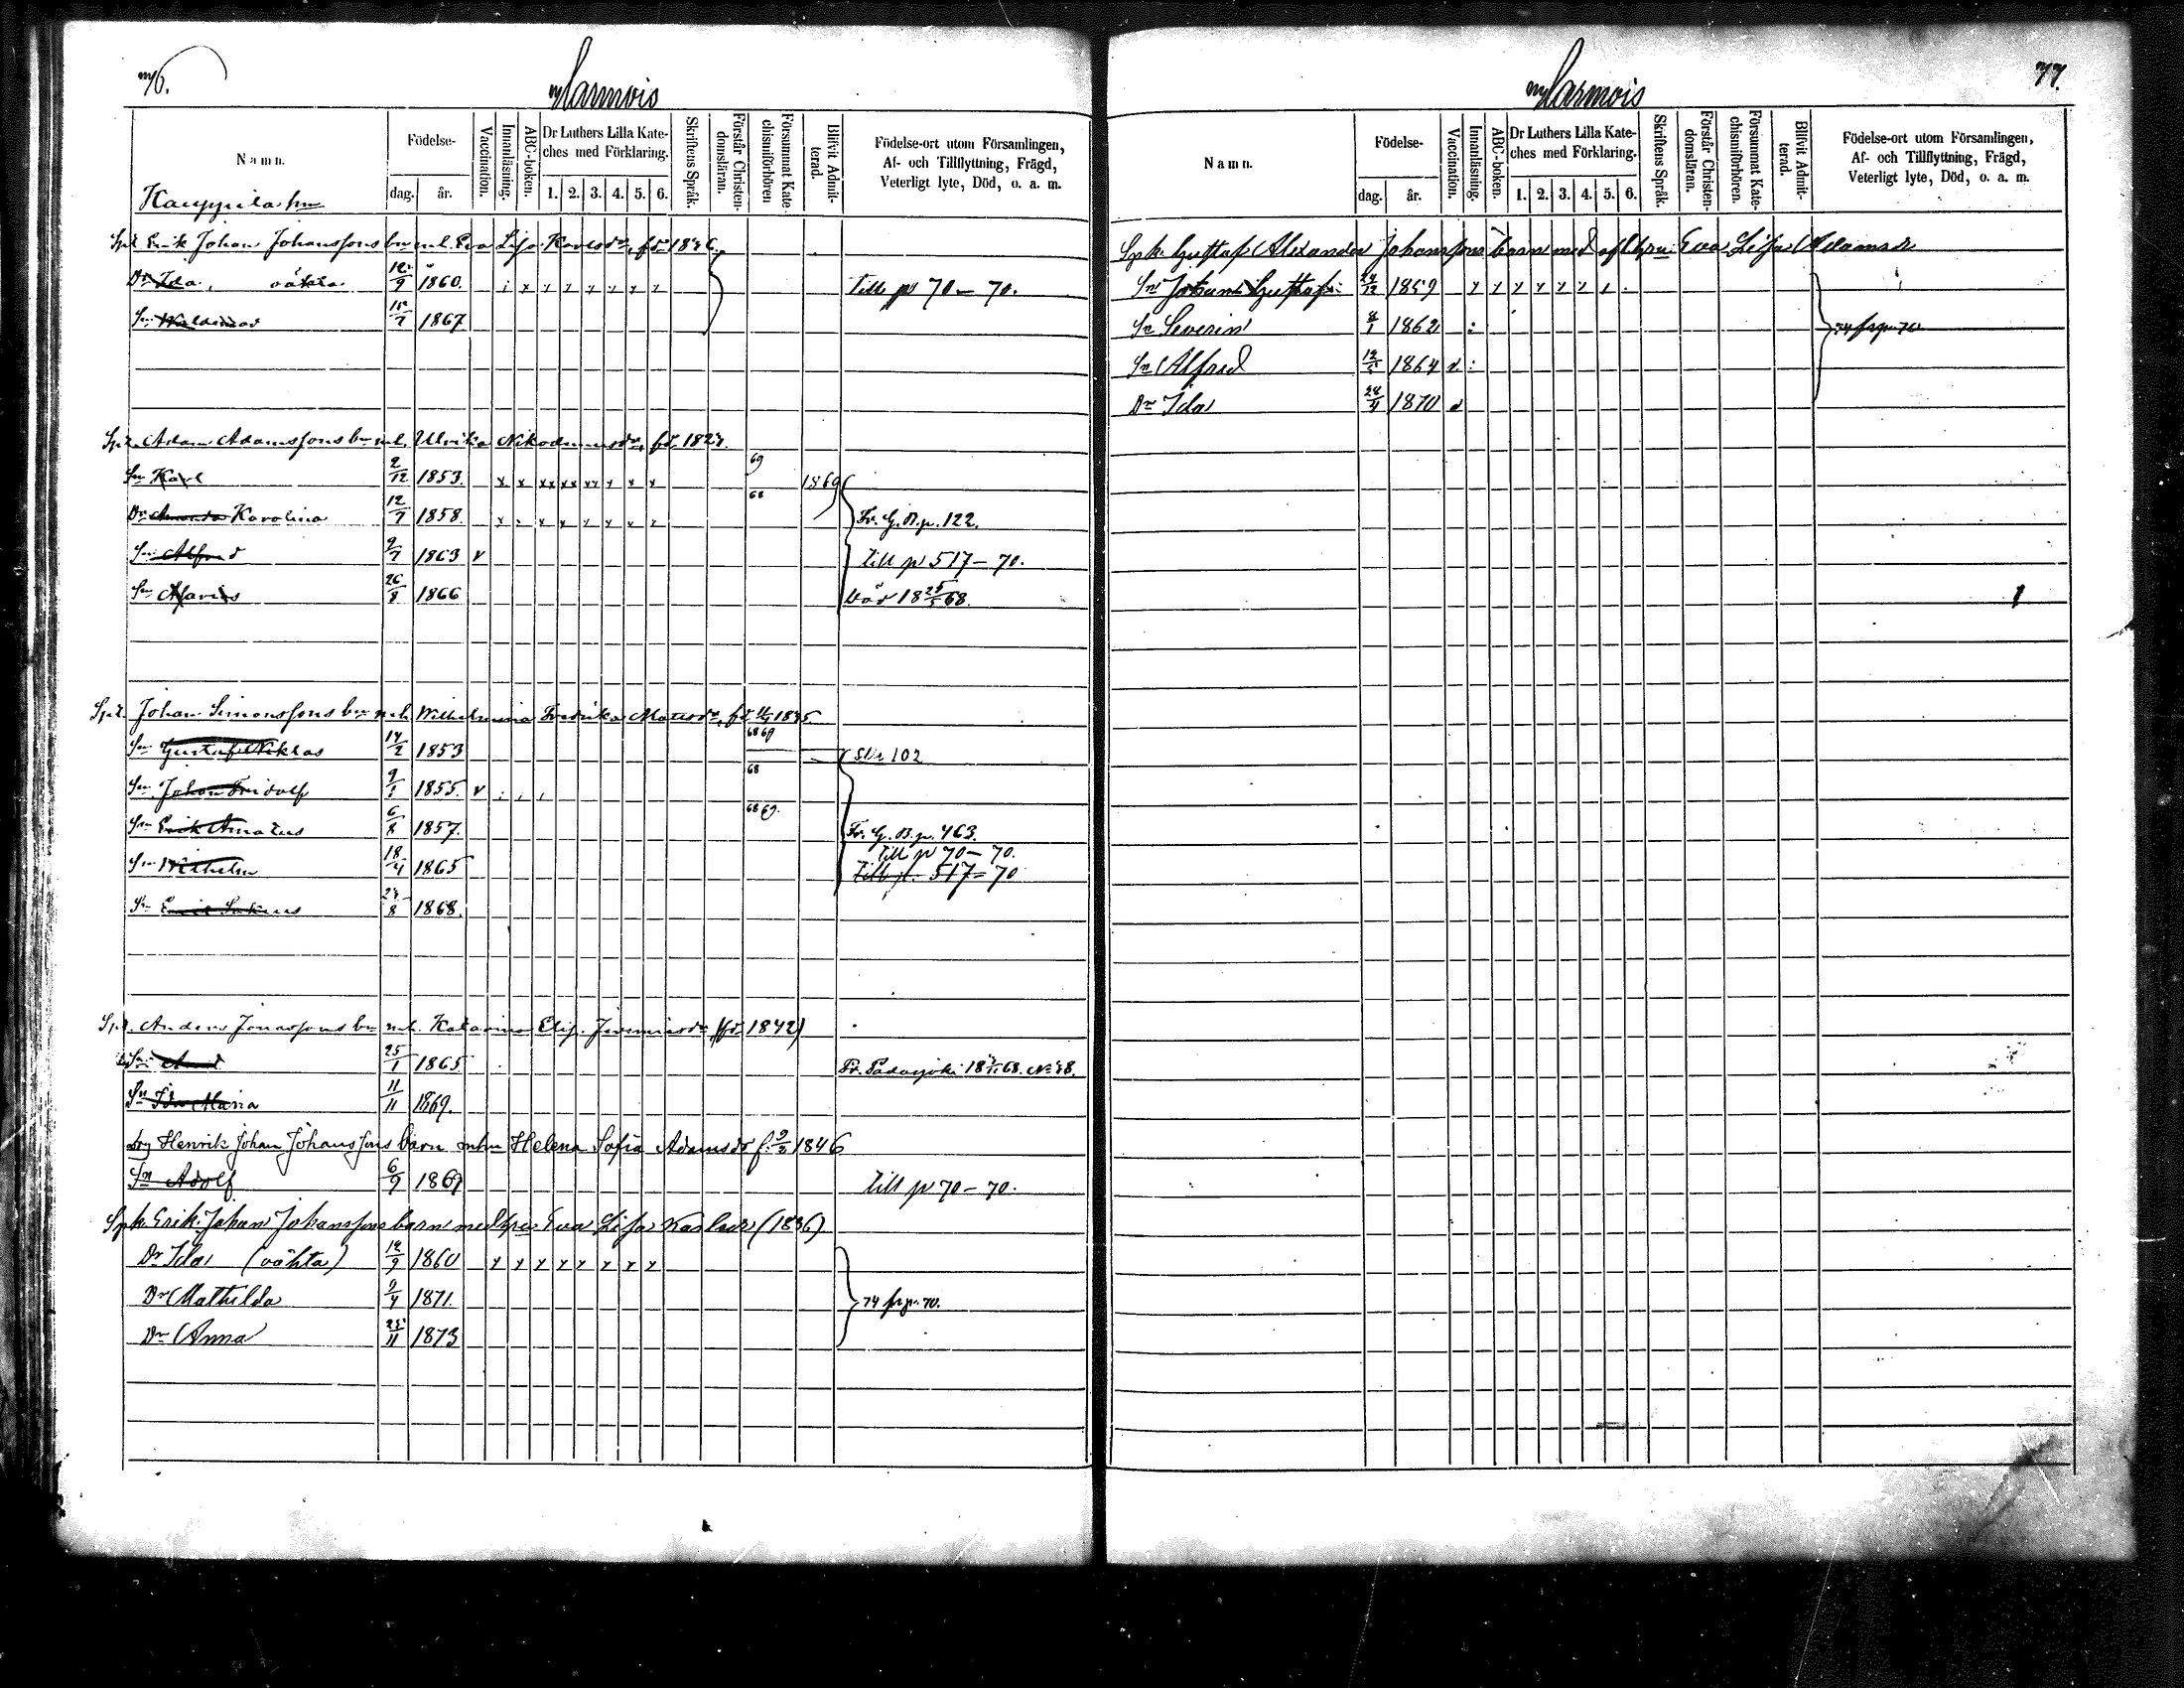 76.
Narmois
Namn.
Födelse-
dag. år.
Vaccination.
Innanläsning.
ABC-boken.
Dr Luthers Lilla Kate-
ches med Förklaring.
1. 2. 3. 4. 5. 6.
Skriftens Språk.
Förstår Christen-
domsläran.
Försummat Kate-
chismiförhören
Blifvit Admit-
terad.
Födelse-ort utom Församlingen,
Af- och Tillflyttning, Frägd,
Veterligt lyte, Död, o. a. m.
Kauppila hn
Erik Johan Johanssons bn m.h. Eva Lisa Karlsdr, fd 1836
Dr Ida, oäkta 12/9 1860. Till p 70 – 70.
Sn Waldemar 15/7 1867
Adam Adamssons bn m.h. Ulrika Nikodemusdr, fd 182
Sn Karl 2/12 1853. 69 1869
Dr Amanda Karolina 12/7 1858. 68 Fr. G.B.p. 122.
Sn Alfred 9/7 1863 v till p 517 – 70.
Sn 26/8 1866 död 18 68.
Johan Simonssons bn m.h. Wilhelmina Fredrika Matsdr, fd 1835
Sn Gustaf Niklas 14/2 1853 68 69 102
Sn Johan Fridolf 9/1 1855. v 68
Sn Erik Amatus 6/8 1857. 68 69. Fr. G.B.p. 463.
Till p 70 – 70.
Sn Wilhelm 18/4 1865 Till p. 517 – 70
Sn 8 1868.
Anders Jonassons bn m.h. Katarina Elis. Jeremiasdr (fd 1842)
Sn 25/1 1865 Fr. 18 68. No 48.
Dr Ida Maria 11/11 1869.
Drg Henrik Johan Johanssons barn mhu Helena Sofia Adamsdr f. 9/2 1846
Sn Adolf 6/9 1869 till p 70 – 70.
Spk. Erik Johan Johanssons barn med hu Eva Lisa Karlsdr (1836)
Dr Ida (oäkta) 12/9 1860
Dr Mathilda 9/4 1871.
74 fr p. 70.
Dr Anna 25/11 1873
Narmois
77.
Namn.
Födelse-
dag. år.
Vaccination.
Innanläsning.
ABC-boken.
Dr Luthers Lilla Kate-
ches med Förklaring.
1. 2. 3. 4. 5. 6.
Skriftens Språk.
Förstår Christen-
domsläran.
Försummat Kate-
chismiförhören.
Blifvit Admit-
terad.
Födelse-ort utom Församlingen,
Af- och Tillflyttning, Frägd,
Veterligt lyte, Död, o. a. m.
Spk. Gustaf Alexander Johanssons barn med afl. hu Eva Lisa Adamsdr
Sn Johan Gustaf 24/12 1859
Sn Severin 8/1 1862 74 fr p. 70
Sn Alfred 1864
Dr Ida 28/4 1870